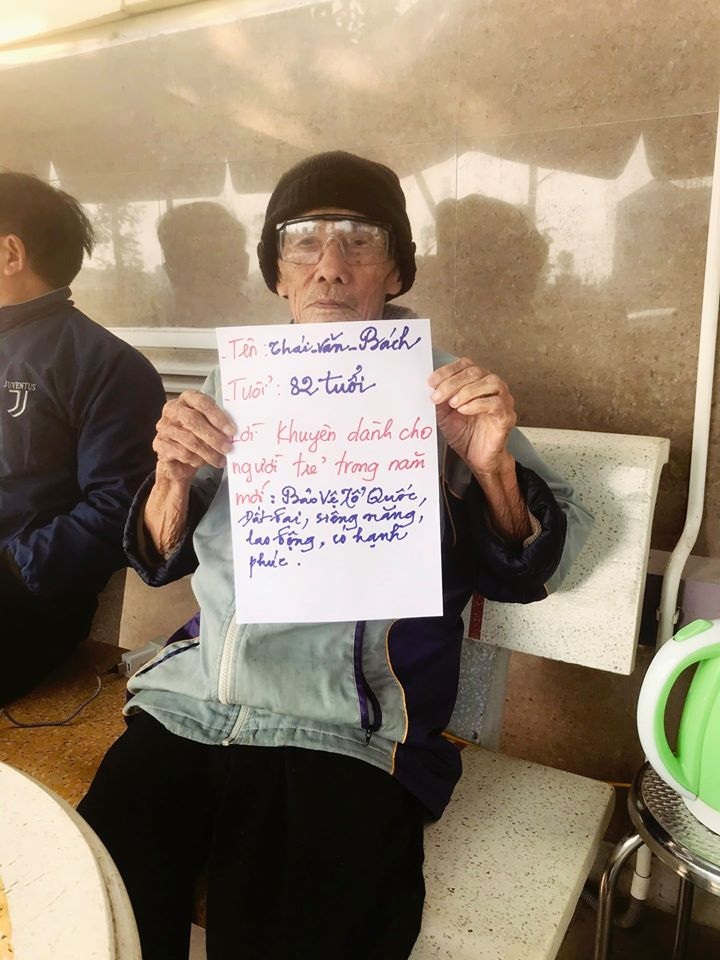 JUVENTUS
- Tên : Thái - Văn - Bách
- Tuổi : 82 tuổi
Lời khuyên dành cho
người trẻ trong năm
mới : Bảo Vệ Tổ Quốc,
Đất đai, siêng năng,
lao động, có hạnh
phúc .